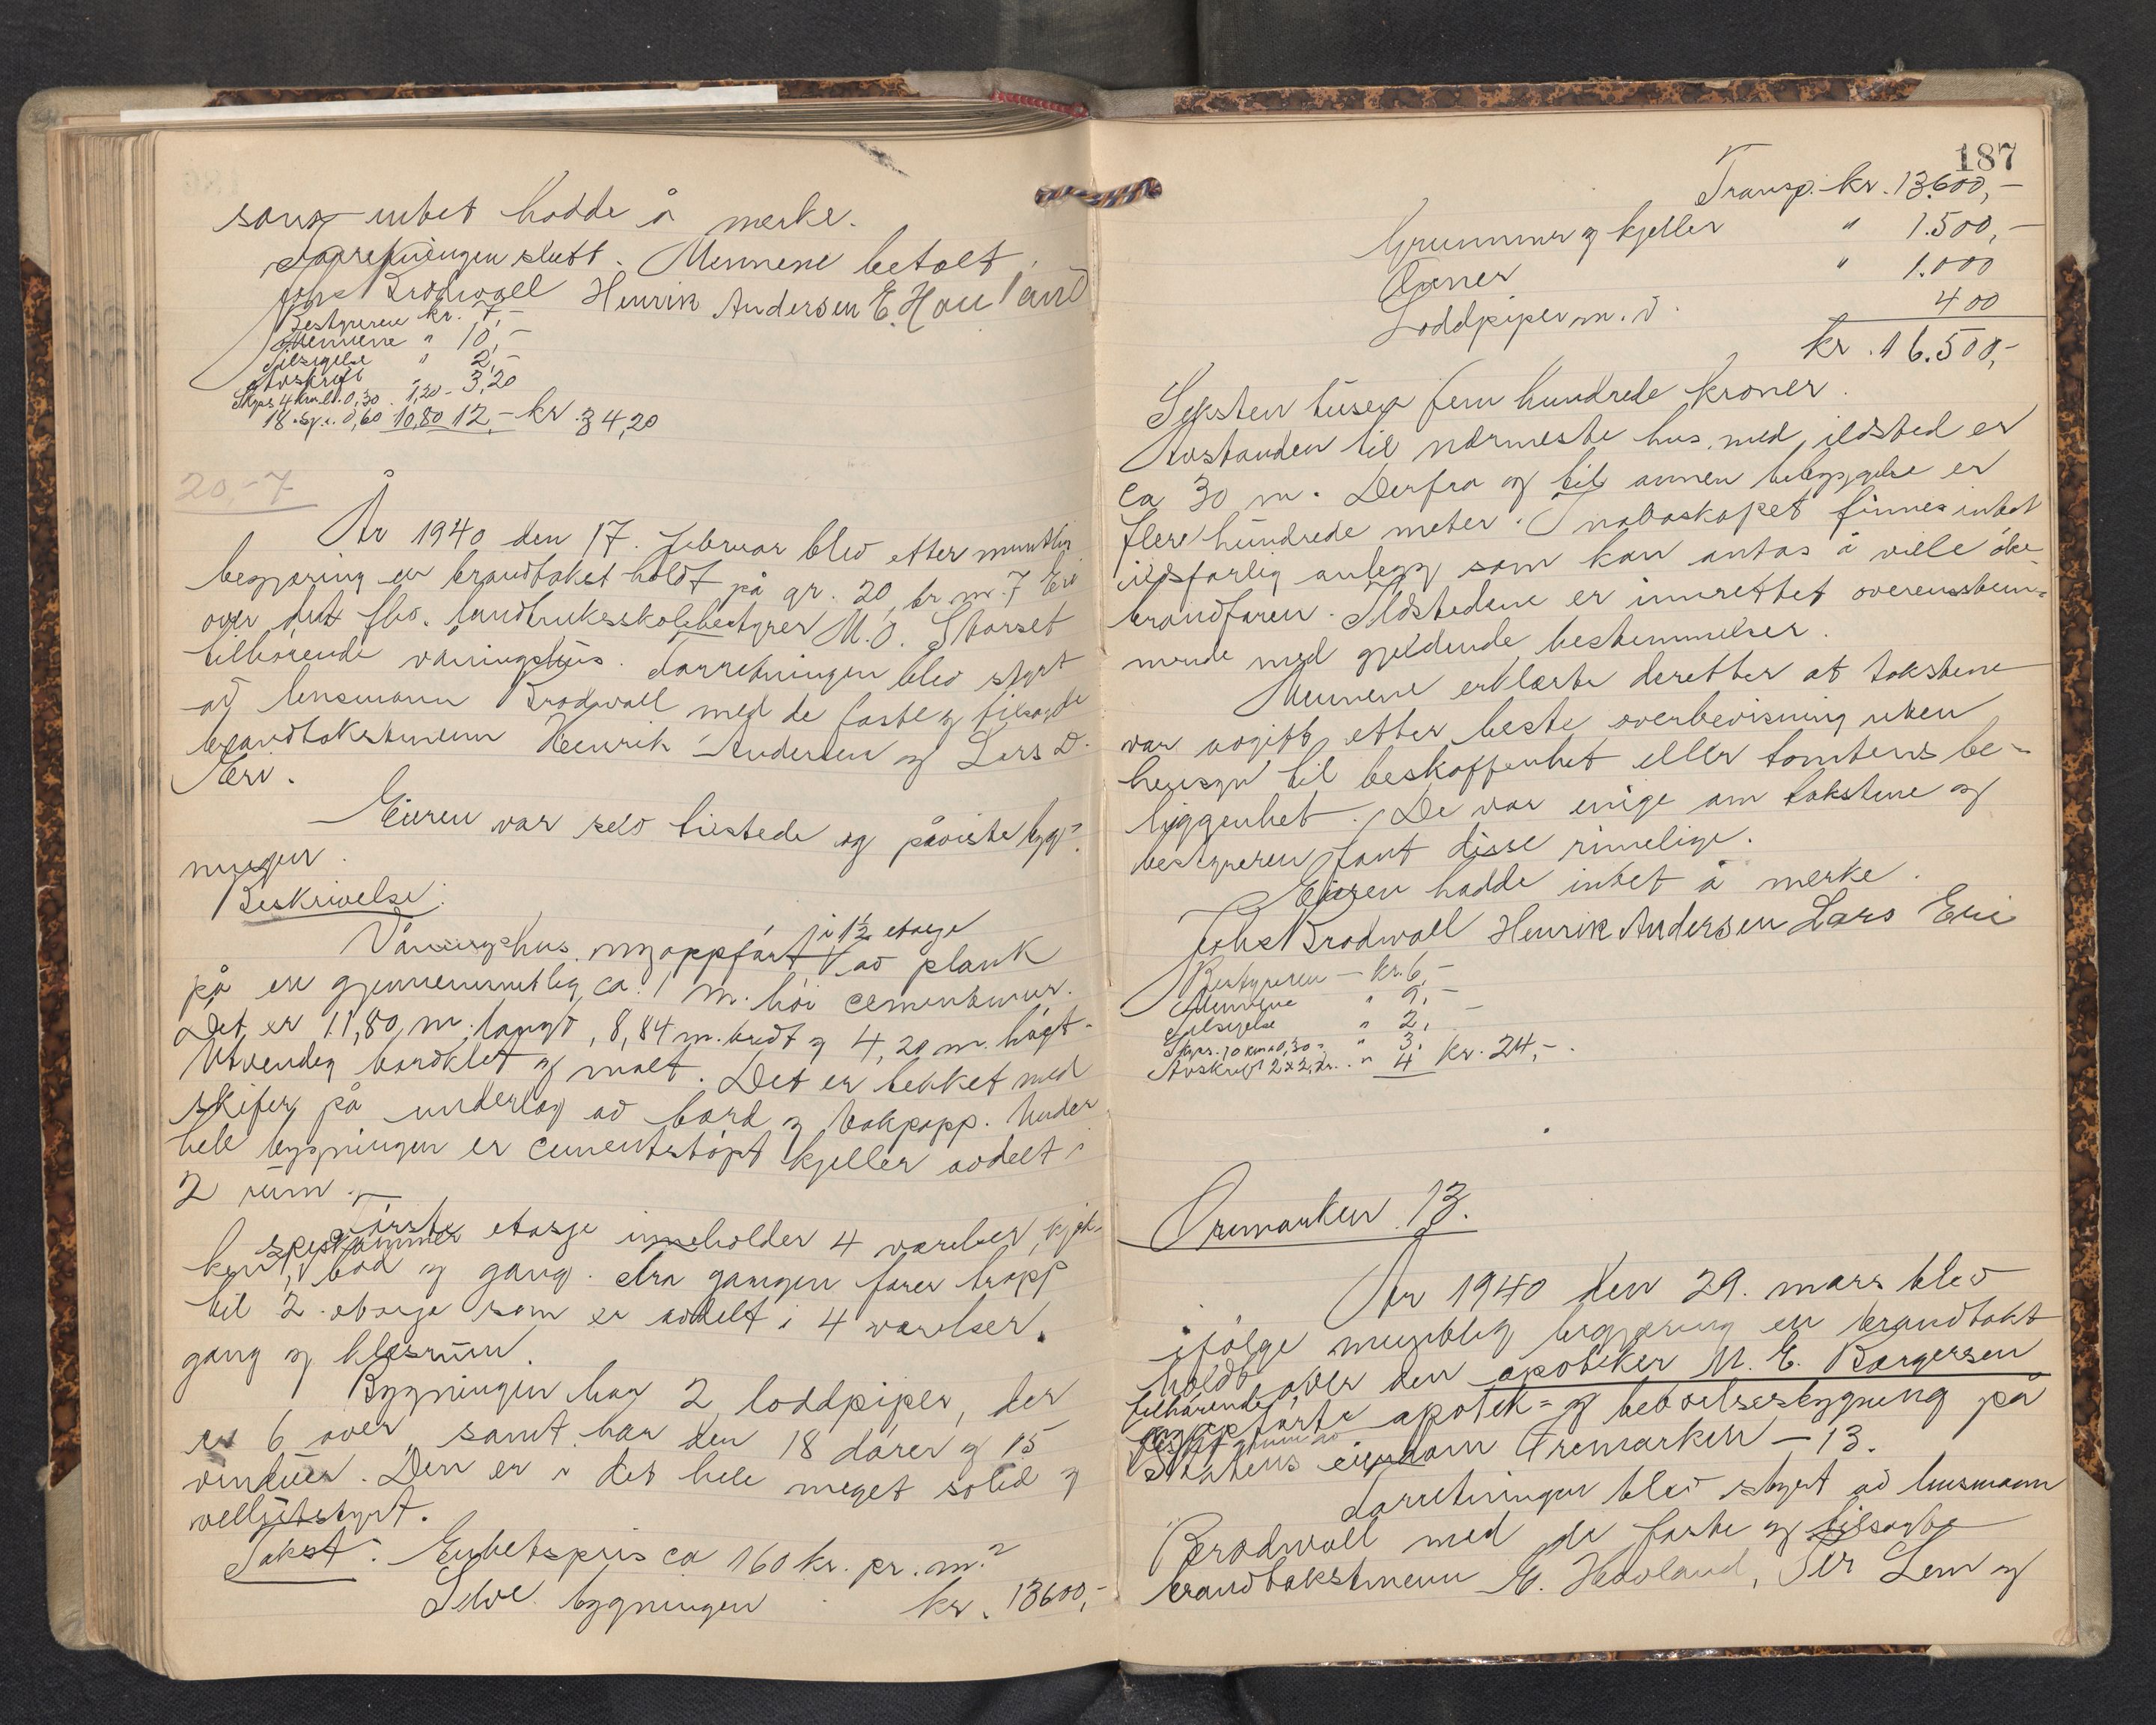 som intet hadde å merke.
Forretningen slutt. Mennene betalt.
Johs Brodwall Henrik Andersen E. Hauland
Bestyreren kr. 7,-
Mennene " 10,-
Tilsigelse " 2,-
Avskrift 3,20
Skyss 4 km. à 0,30 1,20
18 0,60 10,80 12,- kr. 34,20
20,-7
År 1940 den 17. februar blev etter muntlig
begjæring en brandtakst holdt på gr. 20, br.nr. 7 Eri
over den fhv. landbruksskolebestyrer M. O. Storset
tilhørende våningshus. Forretningen blev styrt
av lensmann Brodwall med de faste og tilsagde
brandtakstmenn Henrik Andersen og Lars D.
Eri.
Eieren var selv tilstede og påviste byg-
ningen.
Beskrivelse:
Våningshus nyoppført i 1½ etasje av plank
på en gjennemsnitlig ca. 1 m. høi cementmur.
Det er 11,80 m. langt, 8,84 m. bredt og 4,20 m. høgt.
Utvendig bordklet og malt. Det er tekket med
skifer på underlag av bord og takpapp. Under
hele bygningen er cementstøpt kjeller avdelt i
2 rum.
Første etasje inneholder 4 værelser, kjøk-
ken, spiskammer, bod og gang. Fra gangen fører trapp
til 2. etasje som er avdelt i 4 værelser,
gang og klesrum.
Bygningen har 2 loddpiper, der
er 6 over, samt har den 18 dører og 15
vinduer. Den er i det hele meget solid og
vellutstyrt.
Takst: Enhetspris ca 160 kr. pr. m.²
Selve bygningen kr. 13600,-
187
Transp. kr. 13.600,-
Grunnmur og kjeller " 1.500,-
Ovner " 1.000
Loddpiper m. v. 400
kr. 16.500,-
Seksten tusen fem hundrede kroner.
Avstanden til nærmeste hus med ildsted er
ca 30 m. Derfra og til annen bebyggelse er
flere hundrede meter. I naboskapet finnes intet
ildsfarlig anlegg som kan antas å ville øke
brandfaren. Ildstedene er innrettet overensstem-
mende med gjeldende bestemmelser.
Mennene erklærte deretter at takstene
var avgitt etter beste overbevisning uten
hensyn til beskaffenhet eller tomtens be-
liggenhet. De var enige om takstene og
bestyreren fant disse rimelige.
Eieren hadde intet å merke.
Johs Brodwall Henrik Andersen Lars Eri
Bestyreren - kr. 6,-
Mennene " 9,-
Tilsigelse " 2,-
Skyss. 10 km à 0,30 = " 3,
Avskrift 2 x 2, kr. " 4 kr. 24,-.
Øremarken 13.
År 1940 den 29. mars blev
ifølge muntlig begjæring en brandtakst
holdt over den apoteker M. E. Børgersen
tilhørende
nyoppførte apotek- og beboelsesbygning på
Statens eiendom Øremarken - 13.
Forretningen blev styrt av lensmann
Brodwall med de faste og tilsagte
brandtakstmenn E. Hauland, Per Lem og